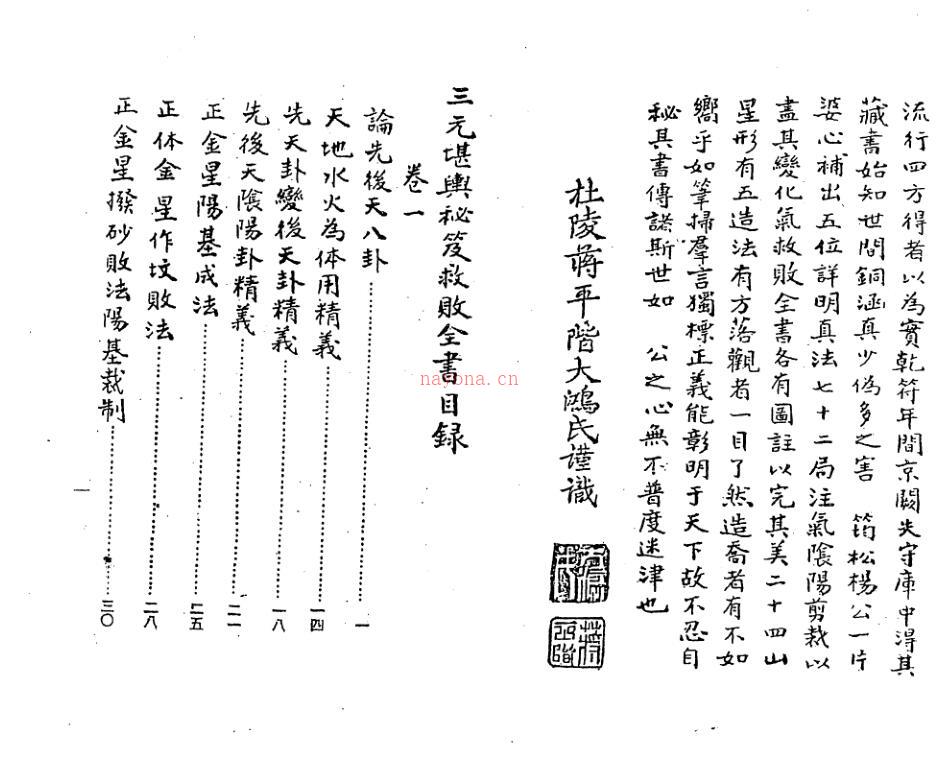 流行四方得者以為寳乾符年間京闕失守庫中淂其
藏書始知世間銅函真少偽多之害　筠松楊公一片
婆心補出五位詳明真法七十二局注氣陰陽剪裁以
盡其變化氣救敗全書各有圖註以完其美二十四山
星形有五造法有方落觀者一目了然造喬者有不如
嚮乎如筆掃羣言獨標正義能彰明于天下故不忍自
秘其書傳諸斯世如　公之心無不普度迷津也
杜陵蔣平階大鴻氏謹識
三元堪輿秘笈救敗全書目録
卷一
論先後天八卦……一
天地水火為体用精義……一四
先天卦變後天卦精義……一八
先後天陰陽卦精義……二一
正金星陽基成法……二五
正体金星作坟敗法……二八
正金星撥砂敗法陽基裁制……三〇
一
nayona.cn